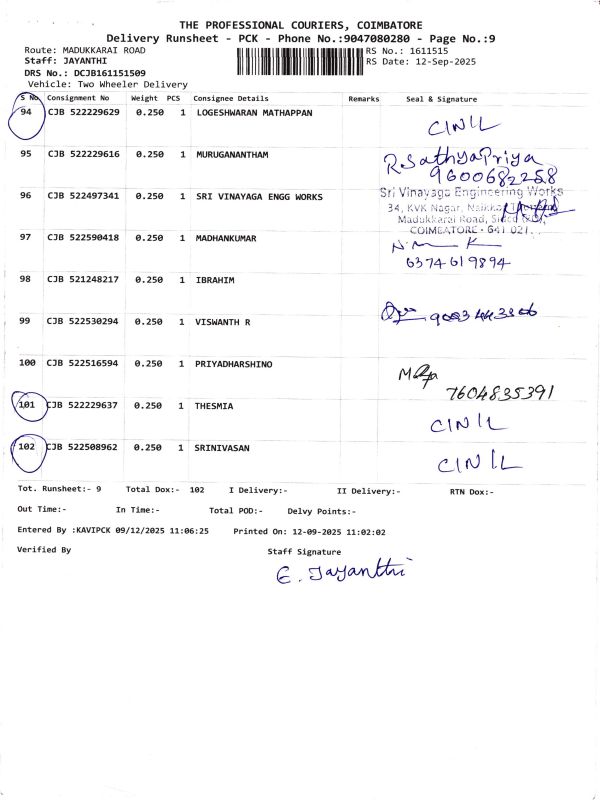 THE PROFESSIONAL COURIERS, COIMBATORE
Delivery Runsheet - PCK - Phone No.:9047080280 - Page No.:9
Route: MADUKKARAI ROAD RS No.: 1611515
Staff: JAYANTHI RS Date: 12-Sep-2025
DRS No.: DCJB161151509
Vehicle: Two Wheeler Delivery
S No. Consignment No Weight PCS Consignee Details Remarks Seal & Signature
94 CJB 522229629 0.250 1 LOGESHWARAN MATHAPPAN
CINIL
95 CJB 522229616 0.250 1 MURUGANANTHAM R.SathyaPriya
9600682258
96 CJB 522497341 0.250 1 SRI VINAYAGA ENGG WORKS Sri Vinayaga Engineering Works
34, KVK Nagar,
Madukkarai Road,
COIMBATORE - 641 021.
97 CJB 522590418 0.250 1 MADHANKUMAR
6374619894
98 CJB 521248217 0.250 1 IBRAHIM
99 CJB 522530294 0.250 1 VISWANTH R
100 CJB 522516594 0.250 1 PRIYADHARSHINO
7604835391
101 CJB 522229637 0.250 1 THESMIA
CINIL
102 CJB 522508962 0.250 1 SRINIVASAN
CINIL
Tot. Runsheet:- 9 Total Dox:- 102 I Delivery:- II Delivery:- RTN Dox:-
Out Time:- In Time:- Total POD:- Delvy Points:-
Entered By :KAVIPCK 09/12/2025 11:06:25 Printed On: 12-09-2025 11:02:02
Verified By Staff Signature
E. Jayanthi